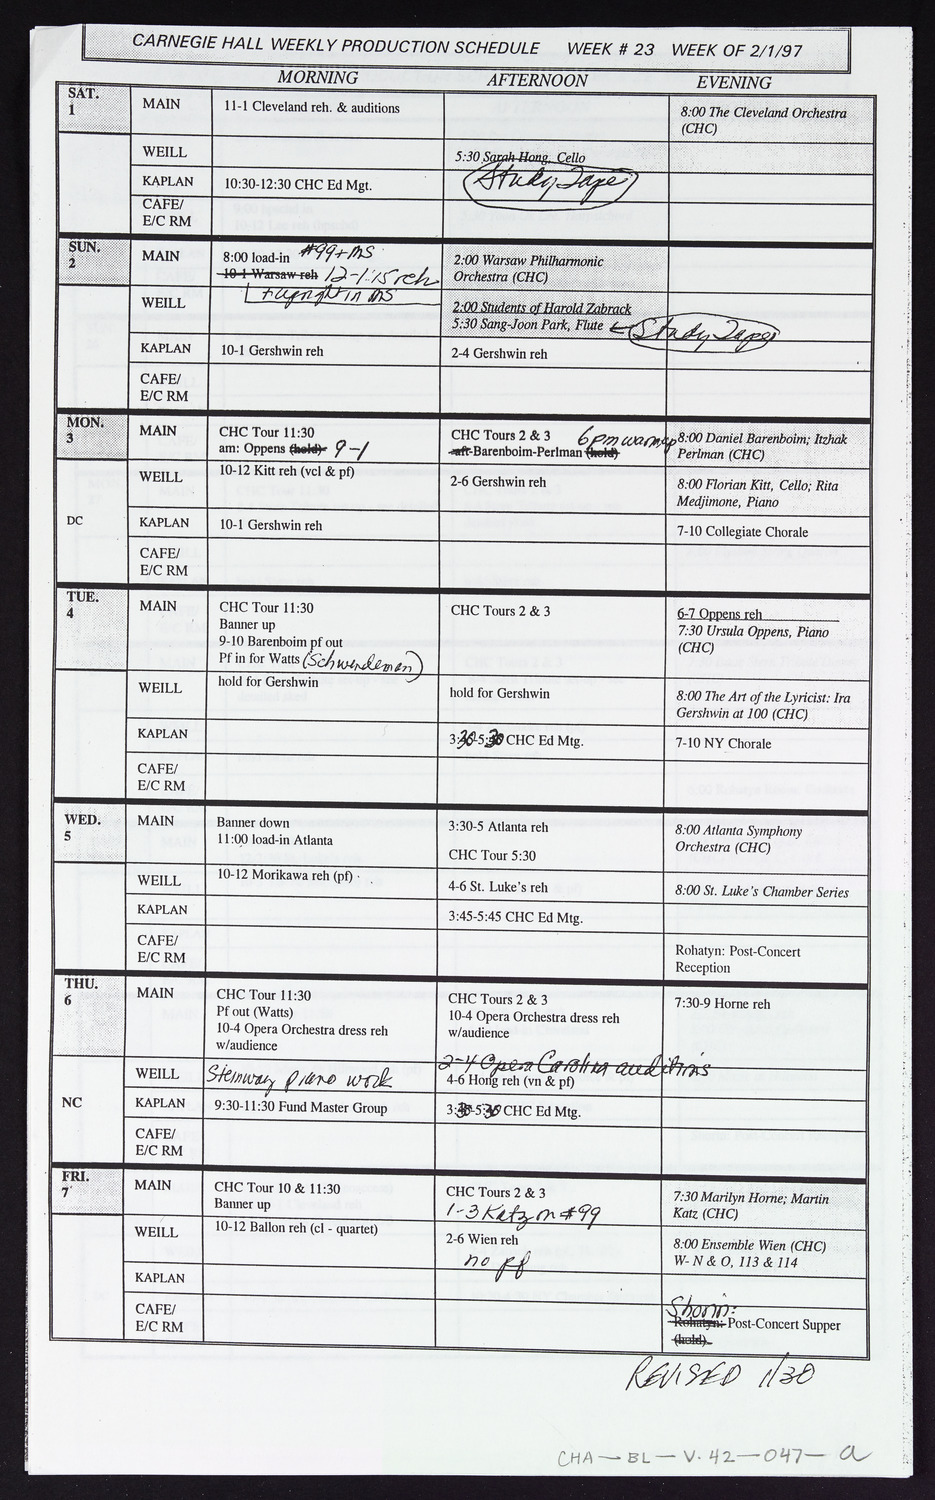 CARNEGIE HALL WEEKLY PRODUCTION SCHEDULE WEEK # 23 WEEK OF 2/1/97
MORNING AFTERNOON EVENING
SAT.
1
MAIN
11-1 Cleveland reh. & auditions
8:00 The Cleveland Orchestra
(CHC)
WEILL
5:30 Sarah Hong, Cello
Study Tape
KAPLAN
10:30-12:30 CHC Ed Mgt.
CAFE/
E/C RM
SUN.
2
MAIN
8:00 load-in #99+MS
10-1 Warsaw reh 12-1:15 reh
2:00 Warsaw Philharmonic
Orchestra (CHC)
WEILL
in MS
2:00 Students of Harold Zabrack
5:30 Sang-Joon Park, Flute
Study Tape
KAPLAN
10-1 Gershwin reh
2-4 Gershwin reh
CAFE/
E/C RM
MON.
3
MAIN
CHC Tour 11:30
am: Oppens (hold) 9-1
CHC Tours 2 & 3 6pm warmup
aft-Barenboim-Perlman (hold)
8:00 Daniel Barenboim; Itzhak
Perlman (CHC)
WEILL
10-12 Kitt reh (vcl & pf)
2-6 Gershwin reh
8:00 Florian Kitt, Cello; Rita
Medjimone, Piano
DC
KAPLAN
10-1 Gershwin reh
7-10 Collegiate Chorale
CAFE/
E/C RM
TUE.
4
MAIN
CHC Tour 11:30
Banner up
9-10 Barenboim pf out
Pf in for Watts (Schwendeman)
CHC Tours 2 & 3
6-7 Oppens reh
7:30 Ursula Oppens, Piano
(CHC)
WEILL
hold for Gershwin
hold for Gershwin
8:00 The Art of the Lyricist: Ira
Gershwin at 100 (CHC)
KAPLAN
3:30-5:30 CHC Ed Mtg.
7-10 NY Chorale
CAFE/
E/C RM
WED.
5
MAIN
Banner down
11:00 load-in Atlanta
3:30-5 Atlanta reh
CHC Tour 5:30
8:00 Atlanta Symphony
Orchestra (CHC)
WEILL
10-12 Morikawa reh (pf)
4-6 St. Luke's reh
8:00 St. Luke's Chamber Series
KAPLAN
3:45-5:45 CHC Ed Mtg.
CAFE/
E/C RM
Rohatyn: Post-Concert
Reception
THU.
6
MAIN
CHC Tour 11:30
Pf out (Watts)
10-4 Opera Orchestra dress reh
w/audience
CHC Tours 2 & 3
10-4 Opera Orchestra dress reh
w/audience
7:30-9 Horne reh
WEILL
Steinway piano work
2-4 Opera Carolina auditions
4-6 Hong reh (vn & pf)
NC
KAPLAN
9:30-11:30 Fund Master Group
3:30-5:30 CHC Ed Mtg.
CAFE/
E/C RM
FRI.
7
MAIN
CHC Tour 10 & 11:30
Banner up
CHC Tours 2 & 3
1-3 Katz on #99
7:30 Marilyn Horne; Martin
Katz (CHC)
WEILL
10-12 Ballon reh (cl - quartet)
2-6 Wien reh
no pf
8:00 Ensemble Wien (CHC)
W- N & O, 113 & 114
KAPLAN
CAFE/
E/C RM
Shorin:
Rohatyn: Post-Concert Supper
(hold)
REVISED 1/30
CHA-BL-V.42-047-a